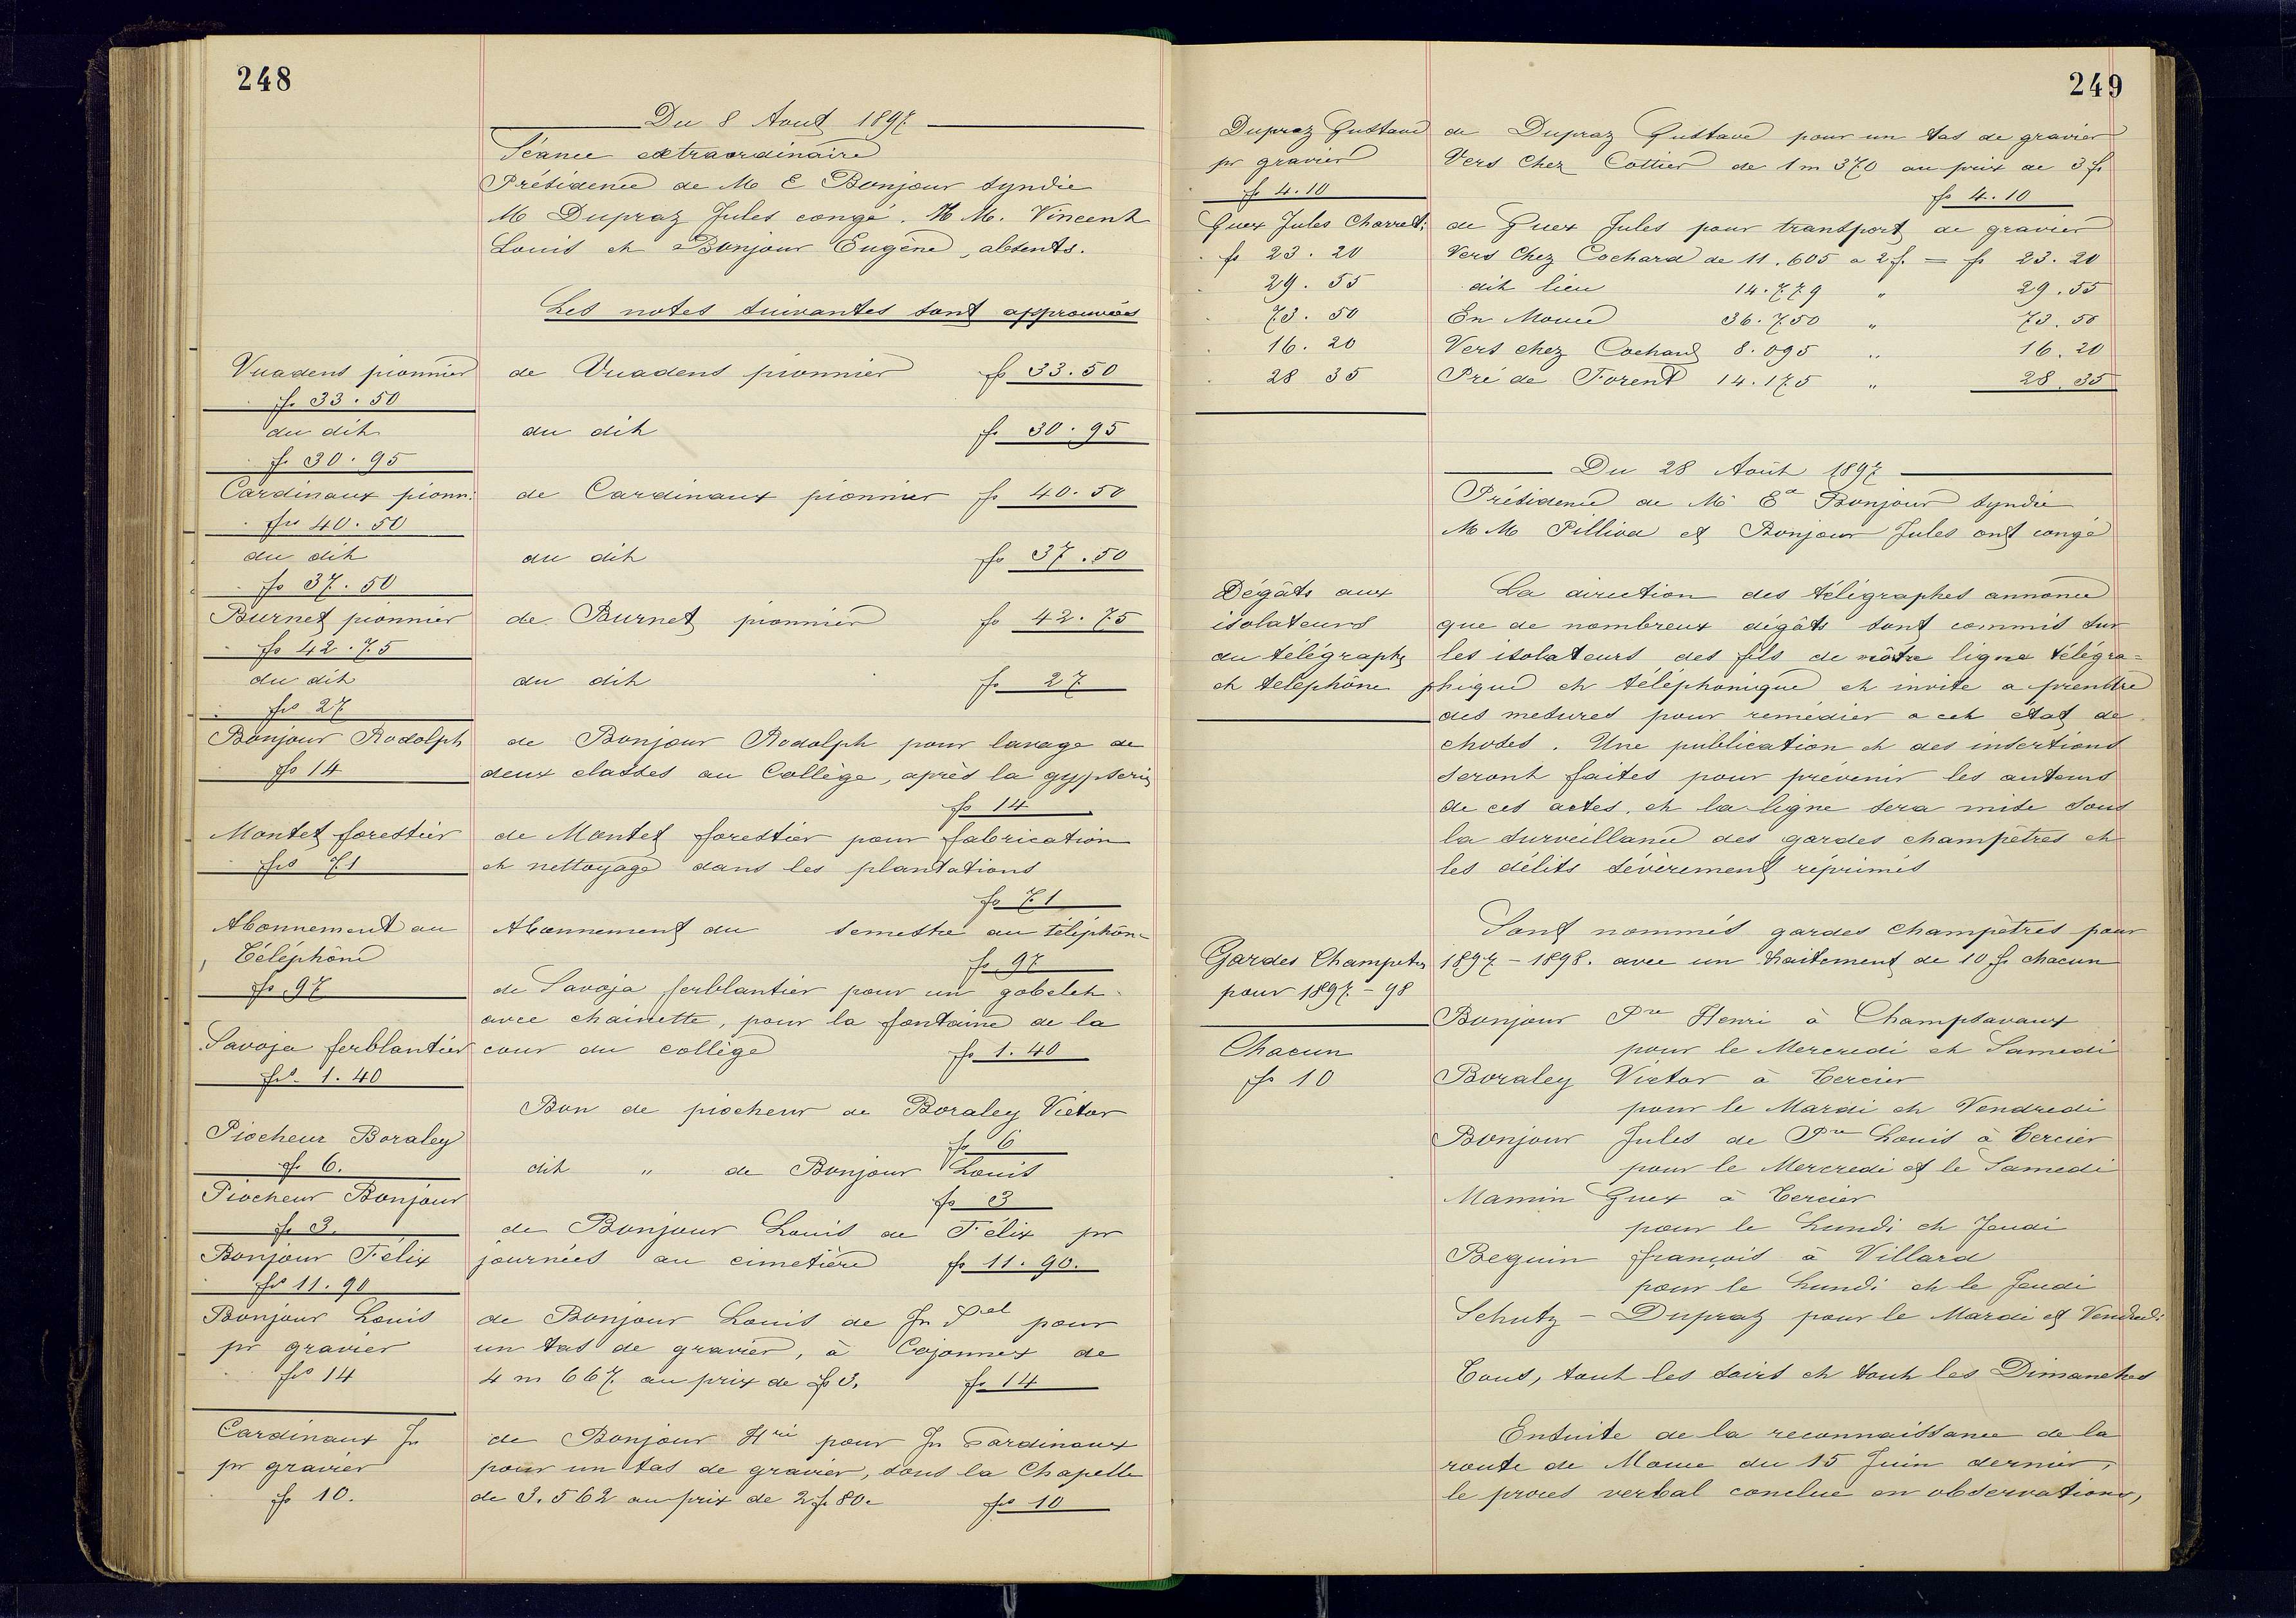 248
Du 8 Aout 1897.
Séance extraordinaire
Présidence de M E Bonjour syndic
M Dupraz Jules congé. M M. Vincent
Louis et Bonjour Eugène, absents.
Les notes suivantes sont approuvées
Vuadens pionnier
fr. 33.50
de Vuadens pionnier fr 33.50
du dit
fr. 30.95
du dit fr 30.95
Cardinaux pionn:
frs 40.50
de Cardinaux pionnier fr 40.50
du dit
fr 37.50
du dit frs 37.50
Burnet pionnier
frs 42.75
de Burnet pionnier fr 42.75
du dit
frs 27
du dit fr 27
Bonjour Rodolph
frs 14
de Bonjour Rodolph pour lavage de
deux classes au Collège, après la gypserie
frs 14
Montet forestier
frs 71
de Montet forestier pour fabrication
et nettoyage dans les plantations
frs 71
Abonnement au
Téléphône
frs 97
Abonnement du semestre au téléphône
frs 97
Savoja ferblantier
frs. 1.40
de Savoja ferblantier pour un gobelet
avec chainette, pour la fontaine de la
cour du collège fr 1.40
Piocheur Boraley
fr 6.
Bon de piocheur de Boraley Victor
fr 6
Piocheur Bonjour
fr 3.
dit " de Bonjour Louis
frs 3
Bonjour Félix
frs 11.90
de Bonjour Louis de Félix pr
journées au cimetière fr 11.90.
Bonjour Louis
pr gravier
frs 14
de Bonjour Louis de Jn Del pour
un tas de gravier, à Cojonnex de
4 m 667 au prix de fr 3. fr 14
Cardinaux Jn
pr gravier
fr 10.
de Bonjour Hri pour Jn Cardinaux
pour un tas de gravier, sous la Chapelle
de 3.562 au prix de 2 fr 80. frs 10
249
Dupraz Gustave
pr gravier
fr 4.10
de Dupraz Gustave pour un tas de gravier
Vers Chez Cottier de 1 m 370 au prix de 3 fr
frs 4.10
Guex Jules Charret:
fr 23.20
29.55
73.50
16.20
28 35
de Guex Jules pour transport de gravier
Vers Chez Cochard de 11.605 a 2 fr. = fr 23.20
dit lieu 14.779 " 29.55
En Moue 36.750 " 73.50
Vers chez Cochard 8.095 " 16.20
Pré de Forent 14.175 " 28.35
Du 28 Août 1897
Présidence de Mr Ed Bonjour syndic
M M Pilliod et Bonjour Jules ont congé
Dégâts aux
isolateurs
du télégraphe
et telephône
La direction des télégraphes annonce
que de nombreux dégâts sont commis sur
les isolateurs des fils de nôtre ligne télégra=
phique et téléphonique et invite a prendre
des mesures pour remédier a cet état de
choses. Une publication et des insertions
seront faites pour prévenir les auteurs
de ces actes, et la ligne sera mise sous
la surveillance des gardes champêtres et
les délits sévèrement réprimés
Gardes Champetrs
pour 1897-98
Chacun
fr 10
Sont nommés gardes champêtres pour
1897-1898. avec un traitement de 10 fr chacun
Bonjour Pre Henri à Champsavaux
pour le Mercredi et Samedi
Boraley Victor à Tercier
pour le Mardi et Vendredi
Bonjour Jules de Pre Louis à Tercier
pour le Mercredi et le Samedi
Mamin Guex à Tercier
pour le Lundi et Jeudi
Beguin françois à Villard
pour le Lundi et le Jeudi
Schutz - Dupraz pour le Mardi et Vendredi
Tous, tout les soirs et tout les Dimanches
Ensuite de la reconnaissance de la
route de Moue du 15 Juin dernier,
le procès verbal conclue en observations,